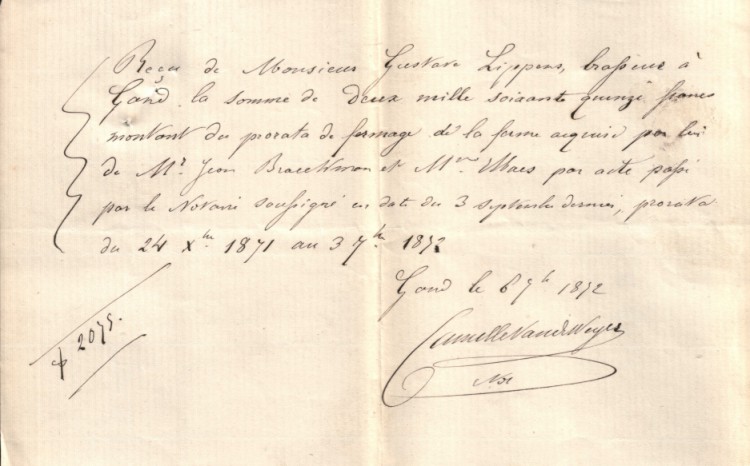 Reçu de Monsieur Gustave Lippens, brasseur à
Gand, la somme de Deux mille soixante quinze francs
montant du prorata de fermage de la ferme acquise par lui
de Mr Jean Braeckman et Mme Maes par acte passé
par le Notaire soussigné en date du 3 septembre dernier, prorata
du 24 Xbre 1871 au 3 7bre 1872
Gand le 6 7bre 1872
2075.
Camille Vande Weyer
Nre